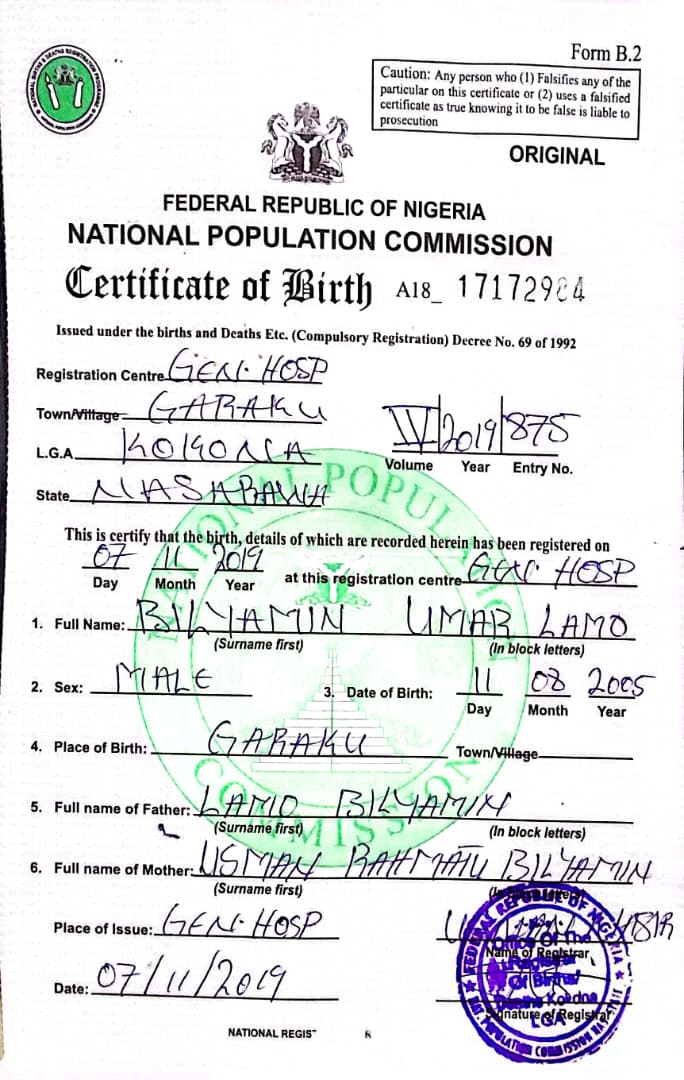 Form B.2
Caution: Any person who (1) Falsifies any of the
particular on this certificate or (2) uses a falsified
certificate as true knowing it to be false is liable to
prosecution
ORIGINAL
FEDERAL REPUBLIC OF NIGERIA
NATIONAL POPULATION COMMISSION
Certificate of Birth A18_ 17172984
Issued under the births and Deaths Etc. (Compulsory Registration) Decree No. 69 of 1992
Registration Centre GEN. HOSP
Town/Village GARAKU
IV 2019 875
L.G.A KOKONA
Volume Year Entry No.
State NASARAWA
This is certify that the birth, details of which are recorded herein has been registered on
07 11 2019 at this registration centre GEN. HOSP
Day Month Year
1. Full Name: BILYAMIN UMAR LAMO
(Surname first) (In block letters)
2. Sex: MALE 3. Date of Birth: 11 08 2005
Day Month Year
4. Place of Birth: GARAKU Town/Village
5. Full name of Father: LAMO BILYAMIN
(Surname first) (In block letters)
6. Full name of Mother: USMAN RAHMATU BILYAMIN
(Surname first)
Place of Issue: GEN. HOSP
Name of Registrar
Date: 07/11/2019
Signature of Registrar
NATIONAL REGIST R
NATIONAL POPULATION COMMISSION
FEDERAL REPUBLIC OF NIGERIA
Office Of The
Registrar
Of Births/
LGA